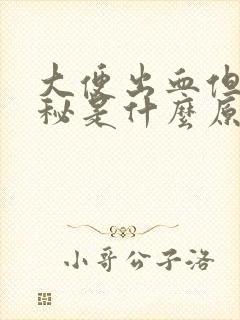 大便出血但
秘是什麼原
小哥公子洛